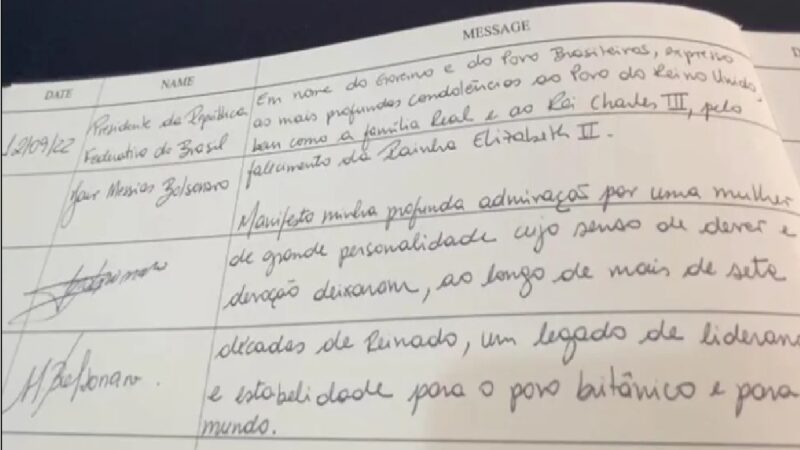 DATE NAME MESSAGE D
12/09/22
Presidente da República
Federativa do Brasil
Jair Messias Bolsonaro
Em nome do Governo e do Povo Brasileiros, expresso
as mais profundas condolências ao Povo do Reino Unido,
bem como à família Real e ao Rei Charles III, pelo
falecimento da Rainha Elizabeth II.
Manifesto minha profunda admiração por uma mulher
de grande personalidade cujo senso de dever e
devoção deixaram, ao longo de mais de sete
décadas de Reinado, um legado de lideran
e estabelidade para o povo britânico e para
mundo.
MBolsonaro.